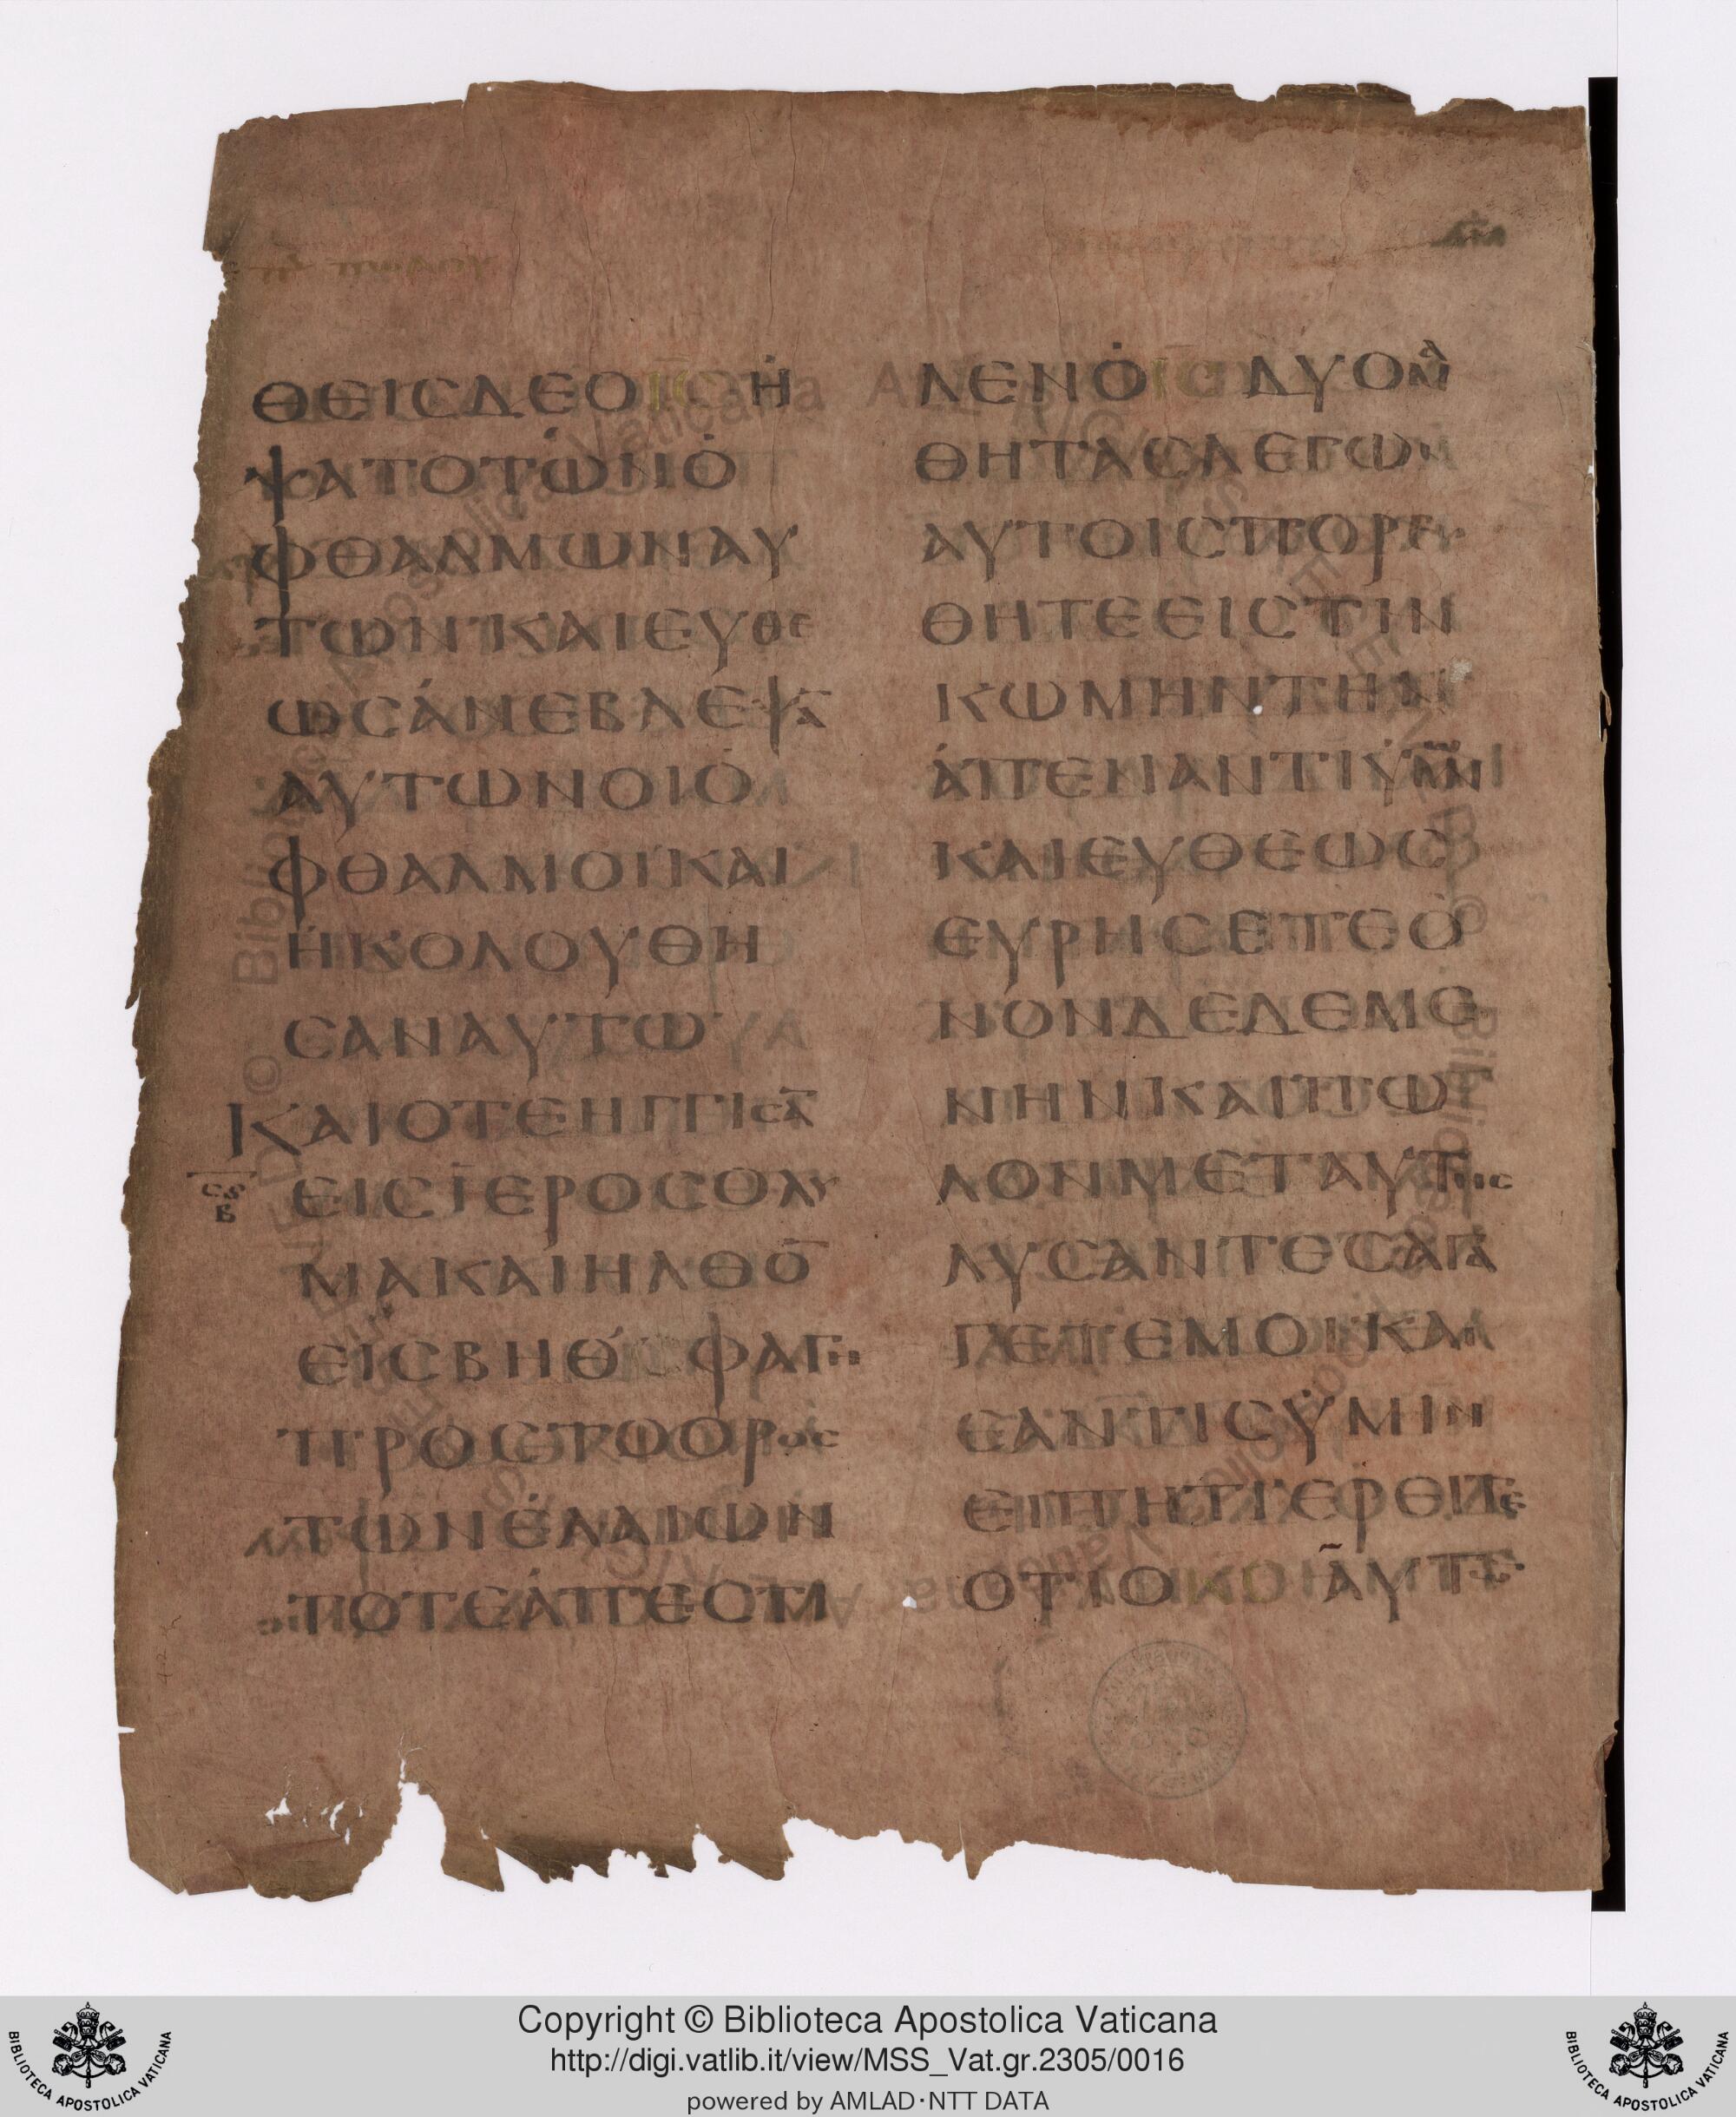 ΘΕΙCΔΕΟΙCΗ
ΨΑΤΟΤΩΝΟ
ΦΘΑΛΜΩΝΑΥ
ΤΩΝΚΑΙΕΥΘΕ
ΩCΑΝΕΒΛΕΨΑ̅
ΑΥΤΩΝΟΙΟ
ΦΘΑΛΜΟΙΚΑΙ
ΗΚΟΛΟΥΘΗ
CΑΝΑΥΤΩ
ΚΑΙΟΤΕΗΓΓΙCΑ̅
ΕΙCΙΕΡΟCΟΛΥ
ΜΑΚΑΙΗΛΘΟ̅
ΕΙCΒΗΘCΦΑΓΗ
ΠΡΟCΤΟΟΡΟC
ΤΩΝΕΛΑΙΩΝ
ΤΟΤΕΑΠΕCΤΙ
ΛΕΝΟΙCΔΥΟΜΑ
ΘΗΤΑCΛΕΓΩΝ
ΑΥΤΟΙCΠΟΡΕΥ
ΘΗΤΕΕΙCΤΗΝ
ΚΩΜΗΝΤΗΝ
ΑΠΕΝΑΝΤΙΥΜΩΝ
ΚΑΙΕΥΘΕΩC
ΕΥΡΗCΕΤΕΟ
ΝΟΝΔΕΔΕΜΕ
ΝΗΝΚΑΙΠΩ
ΛΟΝΜΕΤΑΥΤΗC
ΛΥCΑΝΤΕCΑΓΑ
ΓΕΤΕΜΟΙΚΑΙ
ΕΑΝΤΙCΥΜΙΝ
ΕΙΠΗΤΙΕΡΕΙΤΕ
ΟΤΙΟΚCΑΥΤΩ̅
Copyright © Biblioteca Apostolica Vaticana
http://digi.vatlib.it/view/MSS_Vat.gr.2305/0016
powered by AMLAD·NTT DATA
BIBLIOTECA APOSTOLICA VATICANA
BIBLIOTECA APOSTOLICA VATICANA